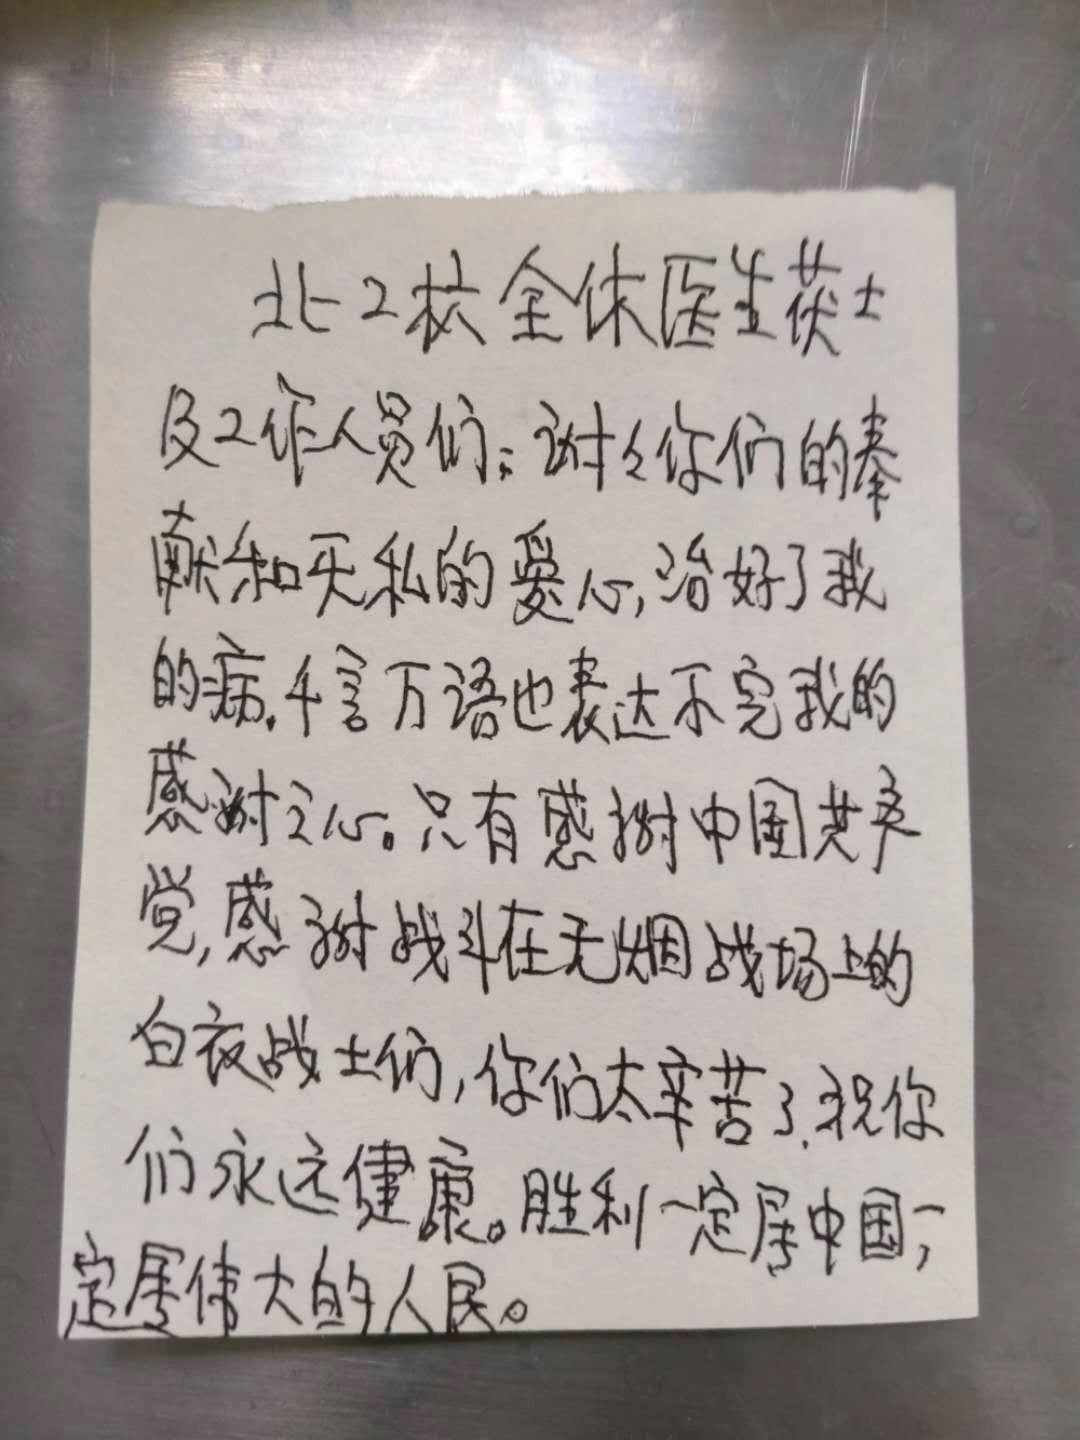 北2校全休医生茯士
及工作人员们:谢々你们的奉
献和无私的爱心,治好了我
的病.千言万语也表达不完我的
感谢之心。只有感谢中国共产
党,感谢战斗在无烟战场上的
白夜战士们,你们太辛苦了.祝你
们永远健康。胜利一定属中国,一
定属伟大的人民。